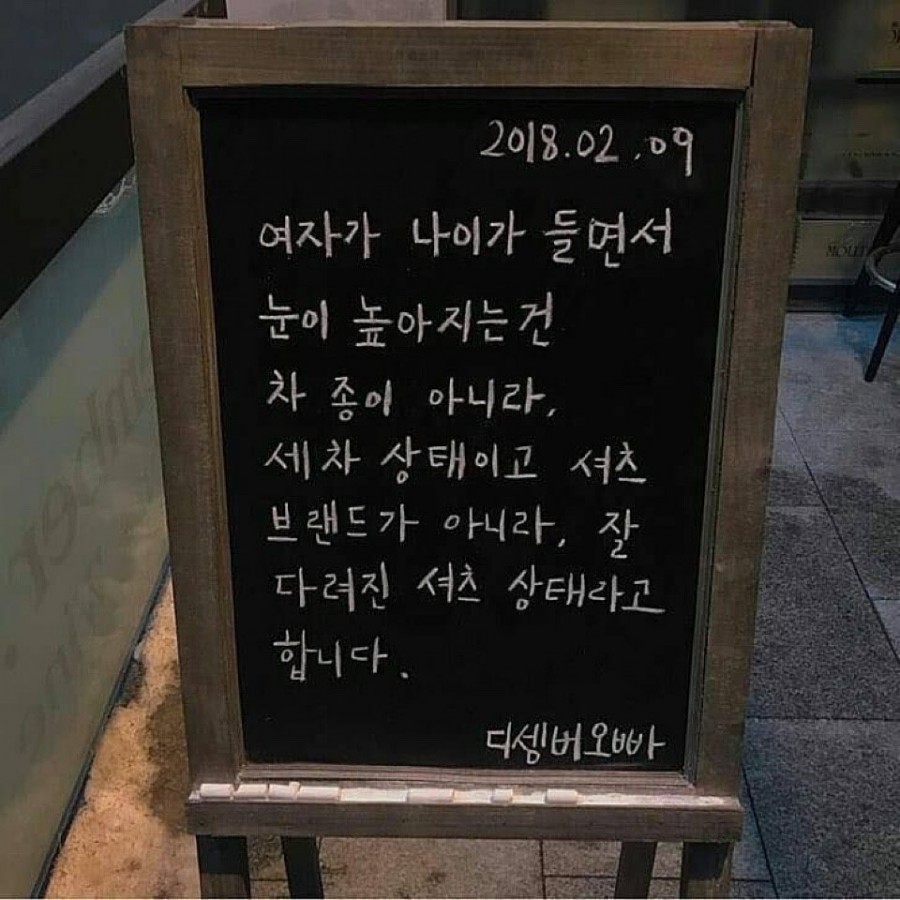 2018.02.09
여자가 나이가 들면서
눈이 높아지는건
차 종이 아니라,
세차 상태이고 셔츠
브랜드가 아니라, 잘
다려진 셔츠 상태라고
합니다.
디셈버오빠